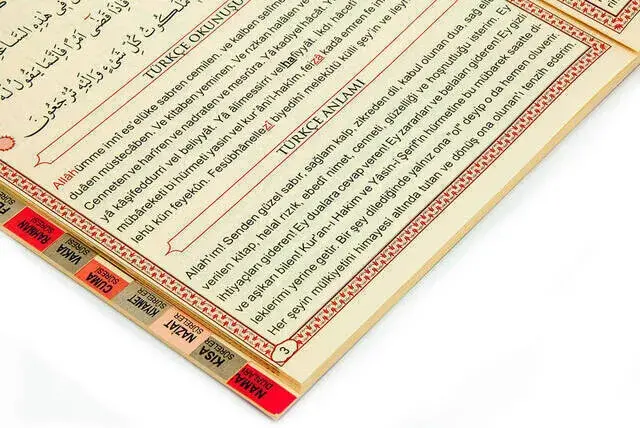 مَلَكُوتُ كُلِّ شَيْءٍ وَإِلَيْهِ تُرْجَعُونَ
TÜRKÇE OKUNUŞU
Allâhümme innî es'elüke sabren cemilen, ve kalben selimen
duâen müstecâben, Ve kitâben yeminen. Ve rızkan halâlen ve
Cenneten ve harîren ve nadraten ve mesrûra. Yâ kadiyel hâcât. Y
yâ kâşifeddurri vel beliyyât. Yâ âlimessirri vel hafiyyât. İkdi hâcetî
mübâreketi bi hürmeti yasin vel kur'âni'l-hakîm, feizâ kadâ emren fe in
lehû kün feyekûn. Fesübhânellezî biyedihî melekûtü külli şey'in ve iley
TÜRKÇE ANLAMI
Allah'ım! Senden güzel sabır, sağlam kalp, zikreden dil, kabul olunan dua, sağ el
verilen kitap, helal rızık, ebedi nimet, cenneti, güzelliği ve hoşnutluğu isterim. Ey
ihtiyaçları gideren! Ey dualara cevap veren! Ey zararları ve belaları gideren! Ey gizli
ve aşikarı bilen! Kur'an-ı Hakim ve Yâsin-i Şerif'in hürmetine bu mübarek saatte di-
leklerimi yerine getir. Bir şey dilediğinde yalnız ona "ol" deyip o da hemen oluverir.
Her şeyin mülkiyetini himayesi altında tutan ve dönüş ona olunan'ı tenzih ederim.
3
FE
RAHMAN
SÛRESİ
VAKIA
SÛRESİ
CUMA
SÛRESİ
KIYAMET
SÛRELER
NAZİAT
SÛRELER
KISA
SÛRELER
NAMAZ
DUALARI